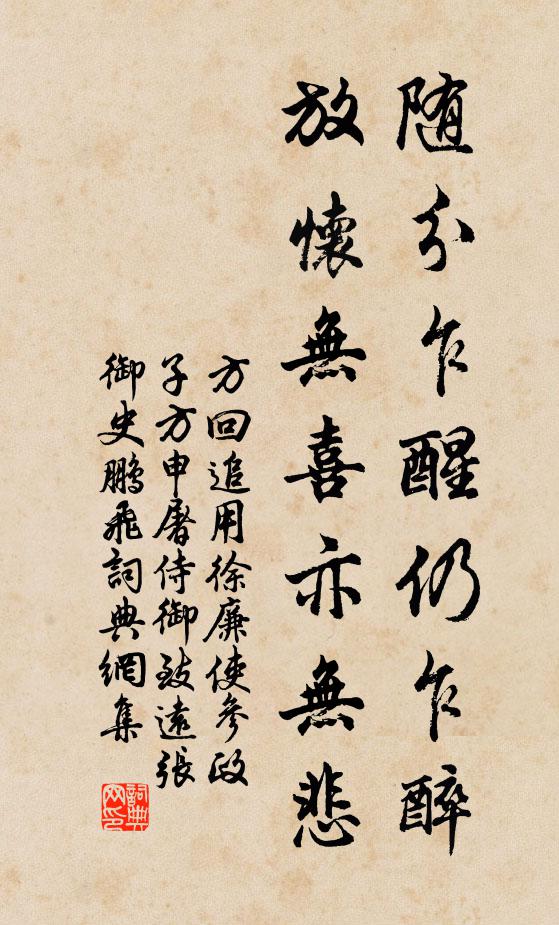 随分乍醒仍乍醉
放懷無喜亦無悲
方回追用徐廉使參政
子方申屠侍御致遠張
御史鵬飛詞典網集
詞典网印